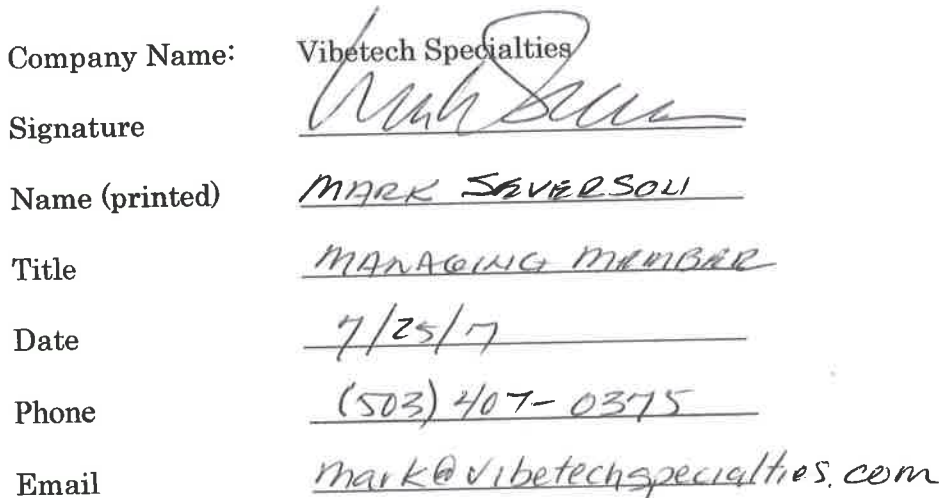 Company Name: Vibetech Specialties
Signature
Name (printed) MARK SEVERSON
Title MANAGING MEMBER
Date 7/25/17
Phone (503) 407-0375
Email mark@vibetechspecialties.com